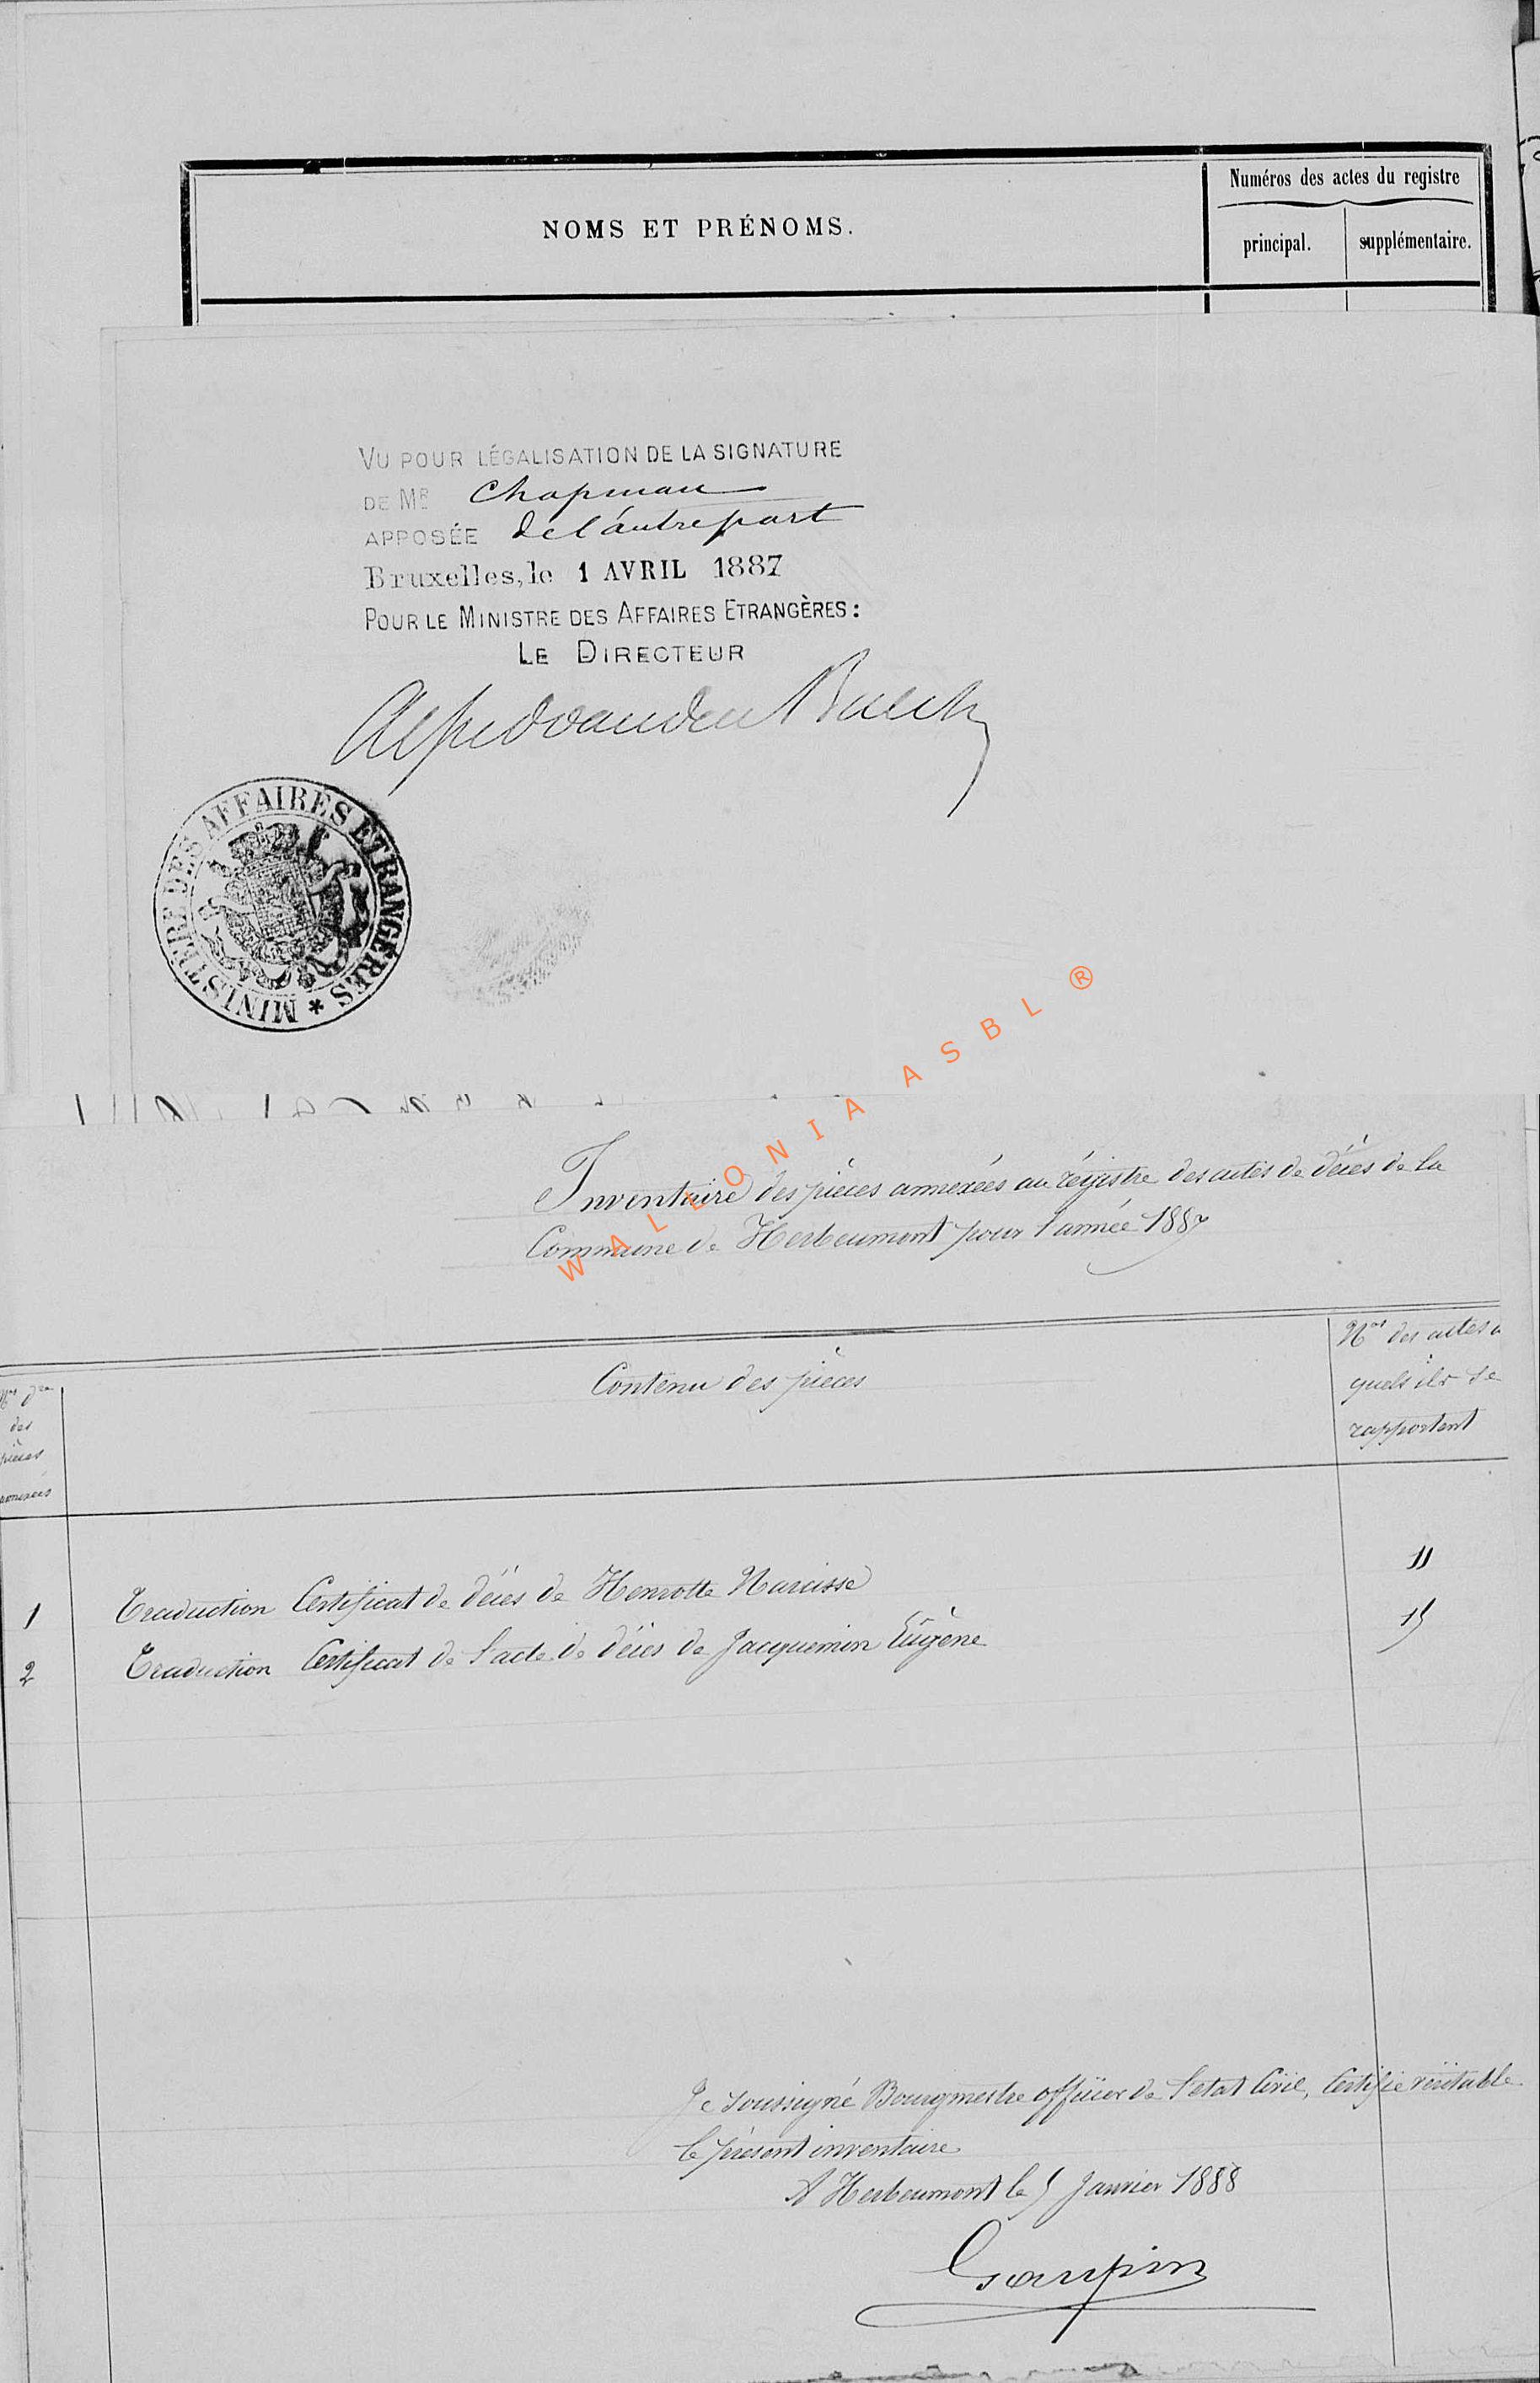 NOMS ET PRÉNOMS.
Numéros des actes du registre
principal.
supplémentaire.
VU POUR LÉGALISATION DE LA SIGNATURE
DE MR Chapman
APPOSÉE de l'autre part
Bruxelles, le 1 AVRIL 1887
POUR LE MINISTRE DES AFFAIRES ETRANGÈRES:
LE DIRECTEUR
Alfred vanden Bulck
MINISTÈRE DES AFFAIRES ETRANGÈRES *
WALLONIA ASBL ®
Inventaire des pièces annexées au régistre des actes de décés de la
Commune de Herbeumont pour l'année 1887
Nos
des
pièces
annexées
Contenu des pièces
Nos des actes a
quels ils se
rapportent
1 Traduction Certificat de décés de Henrotte Narcisse 11
2 Traduction Certificat de l'acte de décés de Jacquemin Eugène 15
Je soussigné Bourgmestre officier de l'etat Civil, Certifie véritable
le présent inventaire
A Herbeumont le 5 Janvier 1888
Goupin